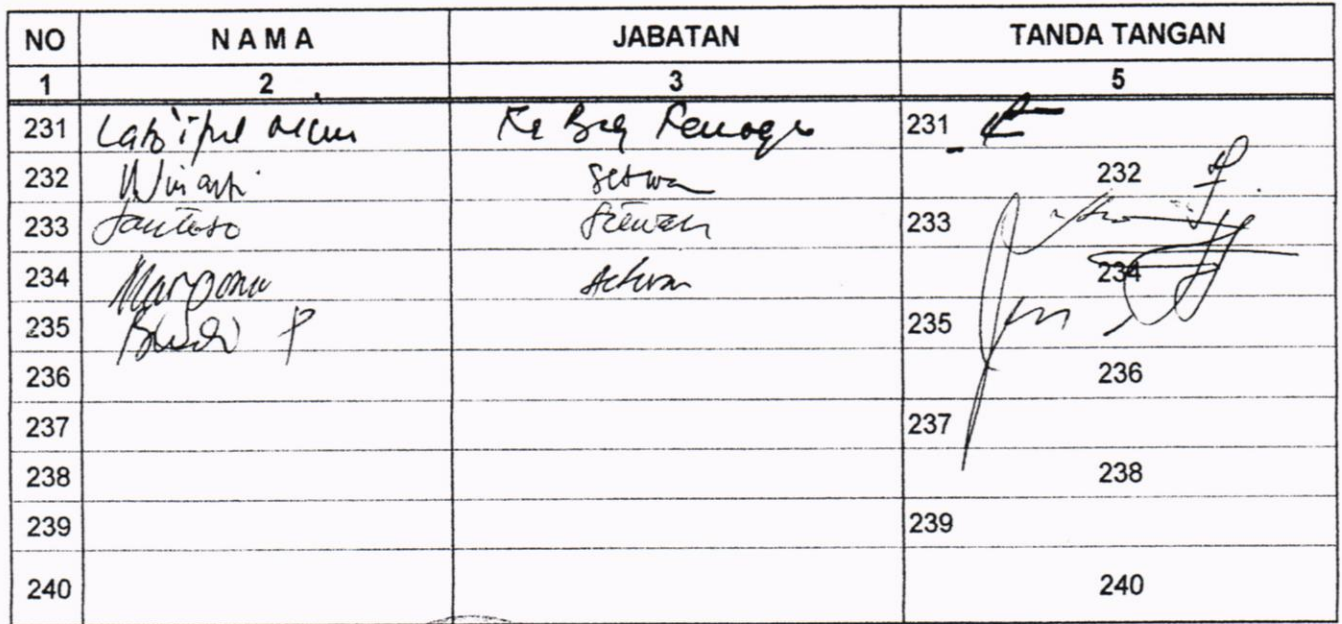 NO NAMA JABATAN TANDA TANGAN
1 2 3 5
231 Ka Bag 231
232 Winarti Setwan 232
233 Santoso Setwan 233
234 Margono Setwan 234
235 Budi P 235
236 236
237 237
238 238
239 239
240 240